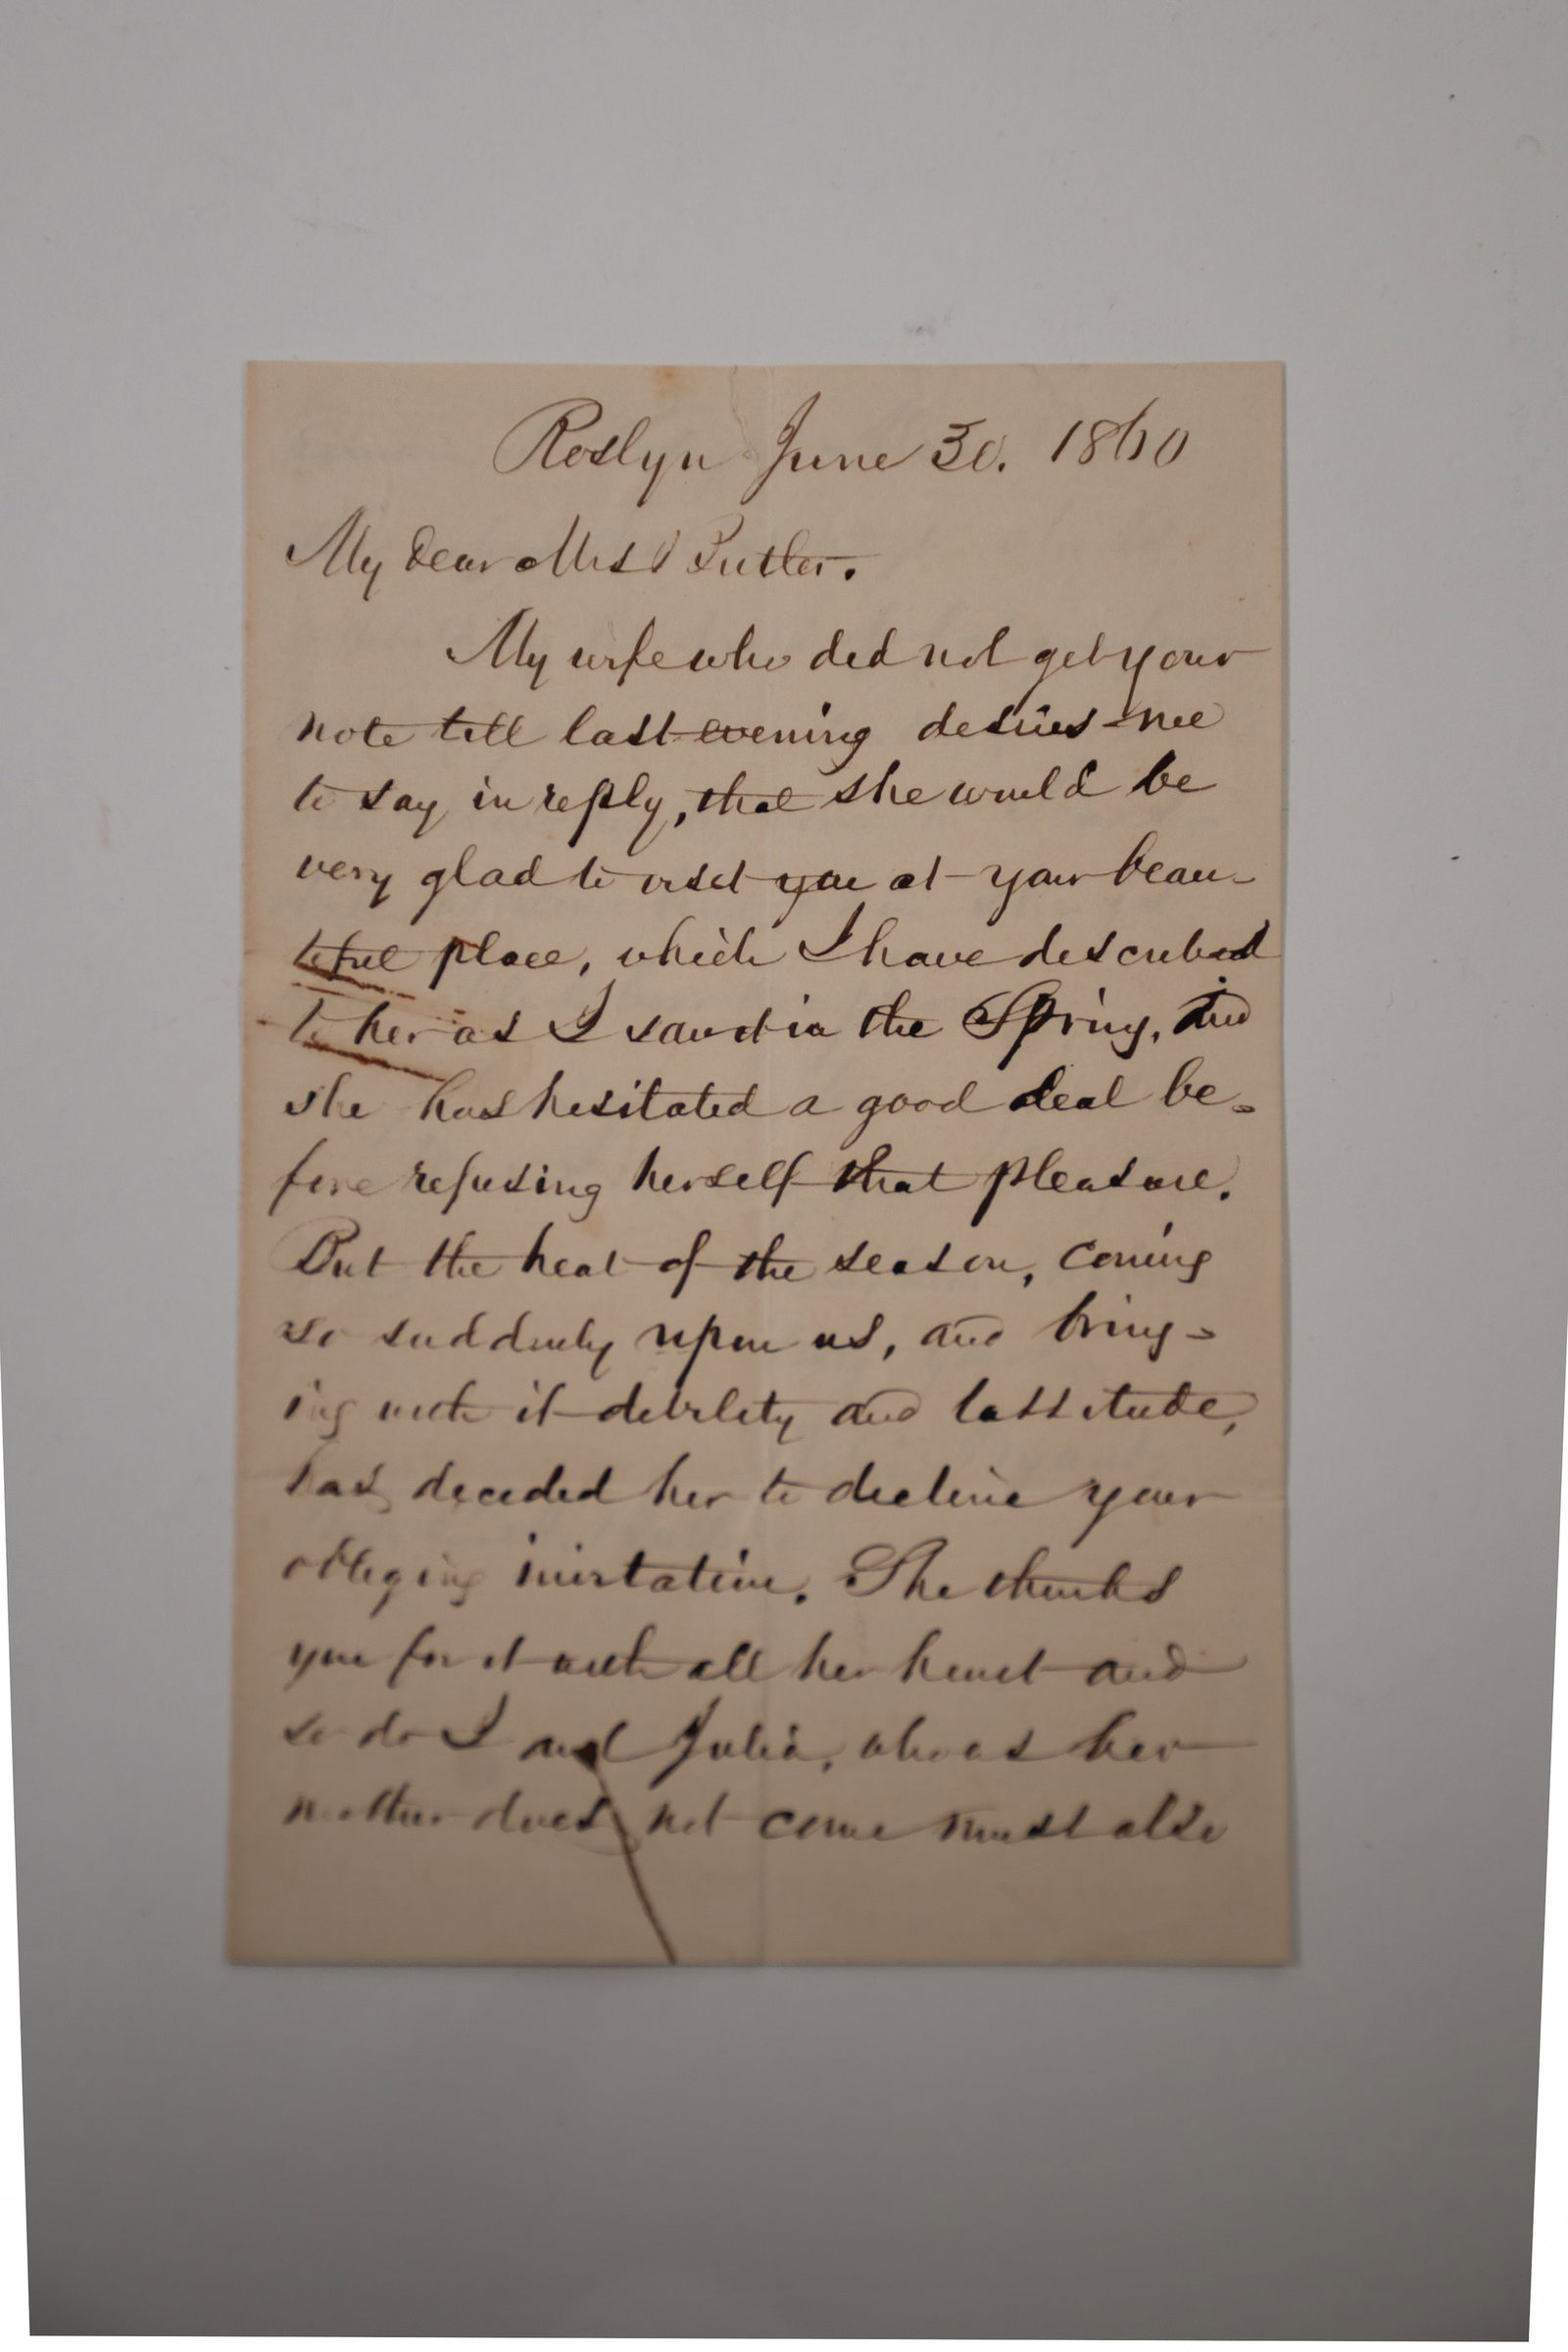 Roslyn June 30. 1860
My dear Mrs Butler.
My wife who did not get your
note till last evening desires me
to say in reply, that she would be
very glad to visit you at your beau-
tiful place, which I have described
to her as I saw it in the Spring, and
she has hesitated a good deal be-
fore refusing herself that pleasure.
But the heat of the season, coming
so suddenly upon us, and bring-
ing with it debility and lassitude,
has decided her to decline your
obliging invitation. She thanks
you for it with all her heart and
so do I and Julia, who as her
mother does not come must also